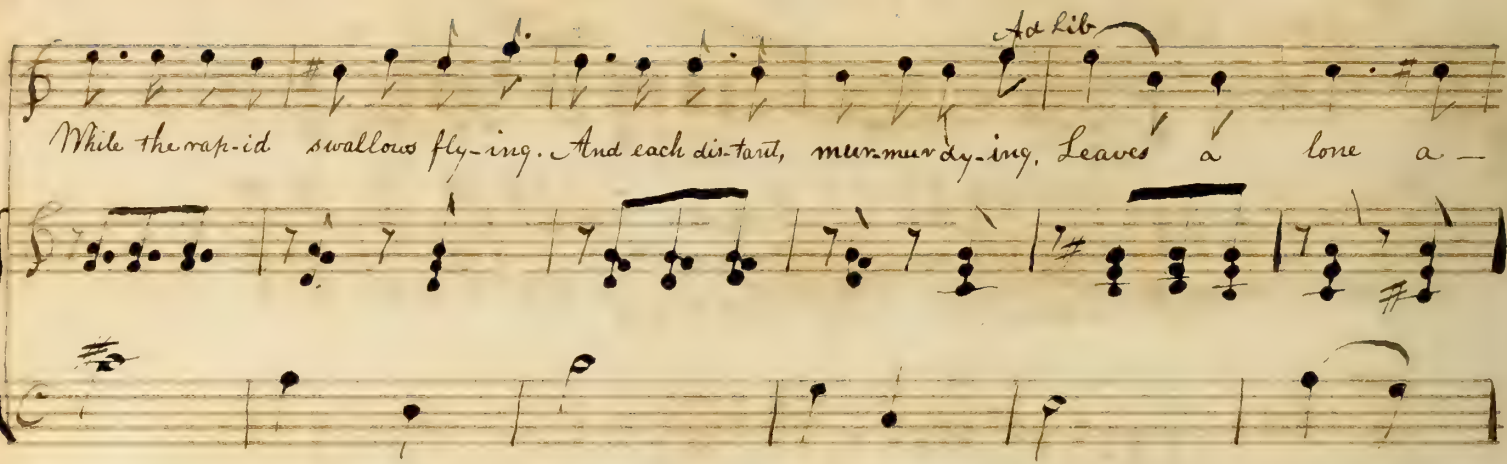 Ad Lib
While the rap-id swallows fly-ing. And each dis-tant, mur-mur dy-ing, Leaves a lone a -